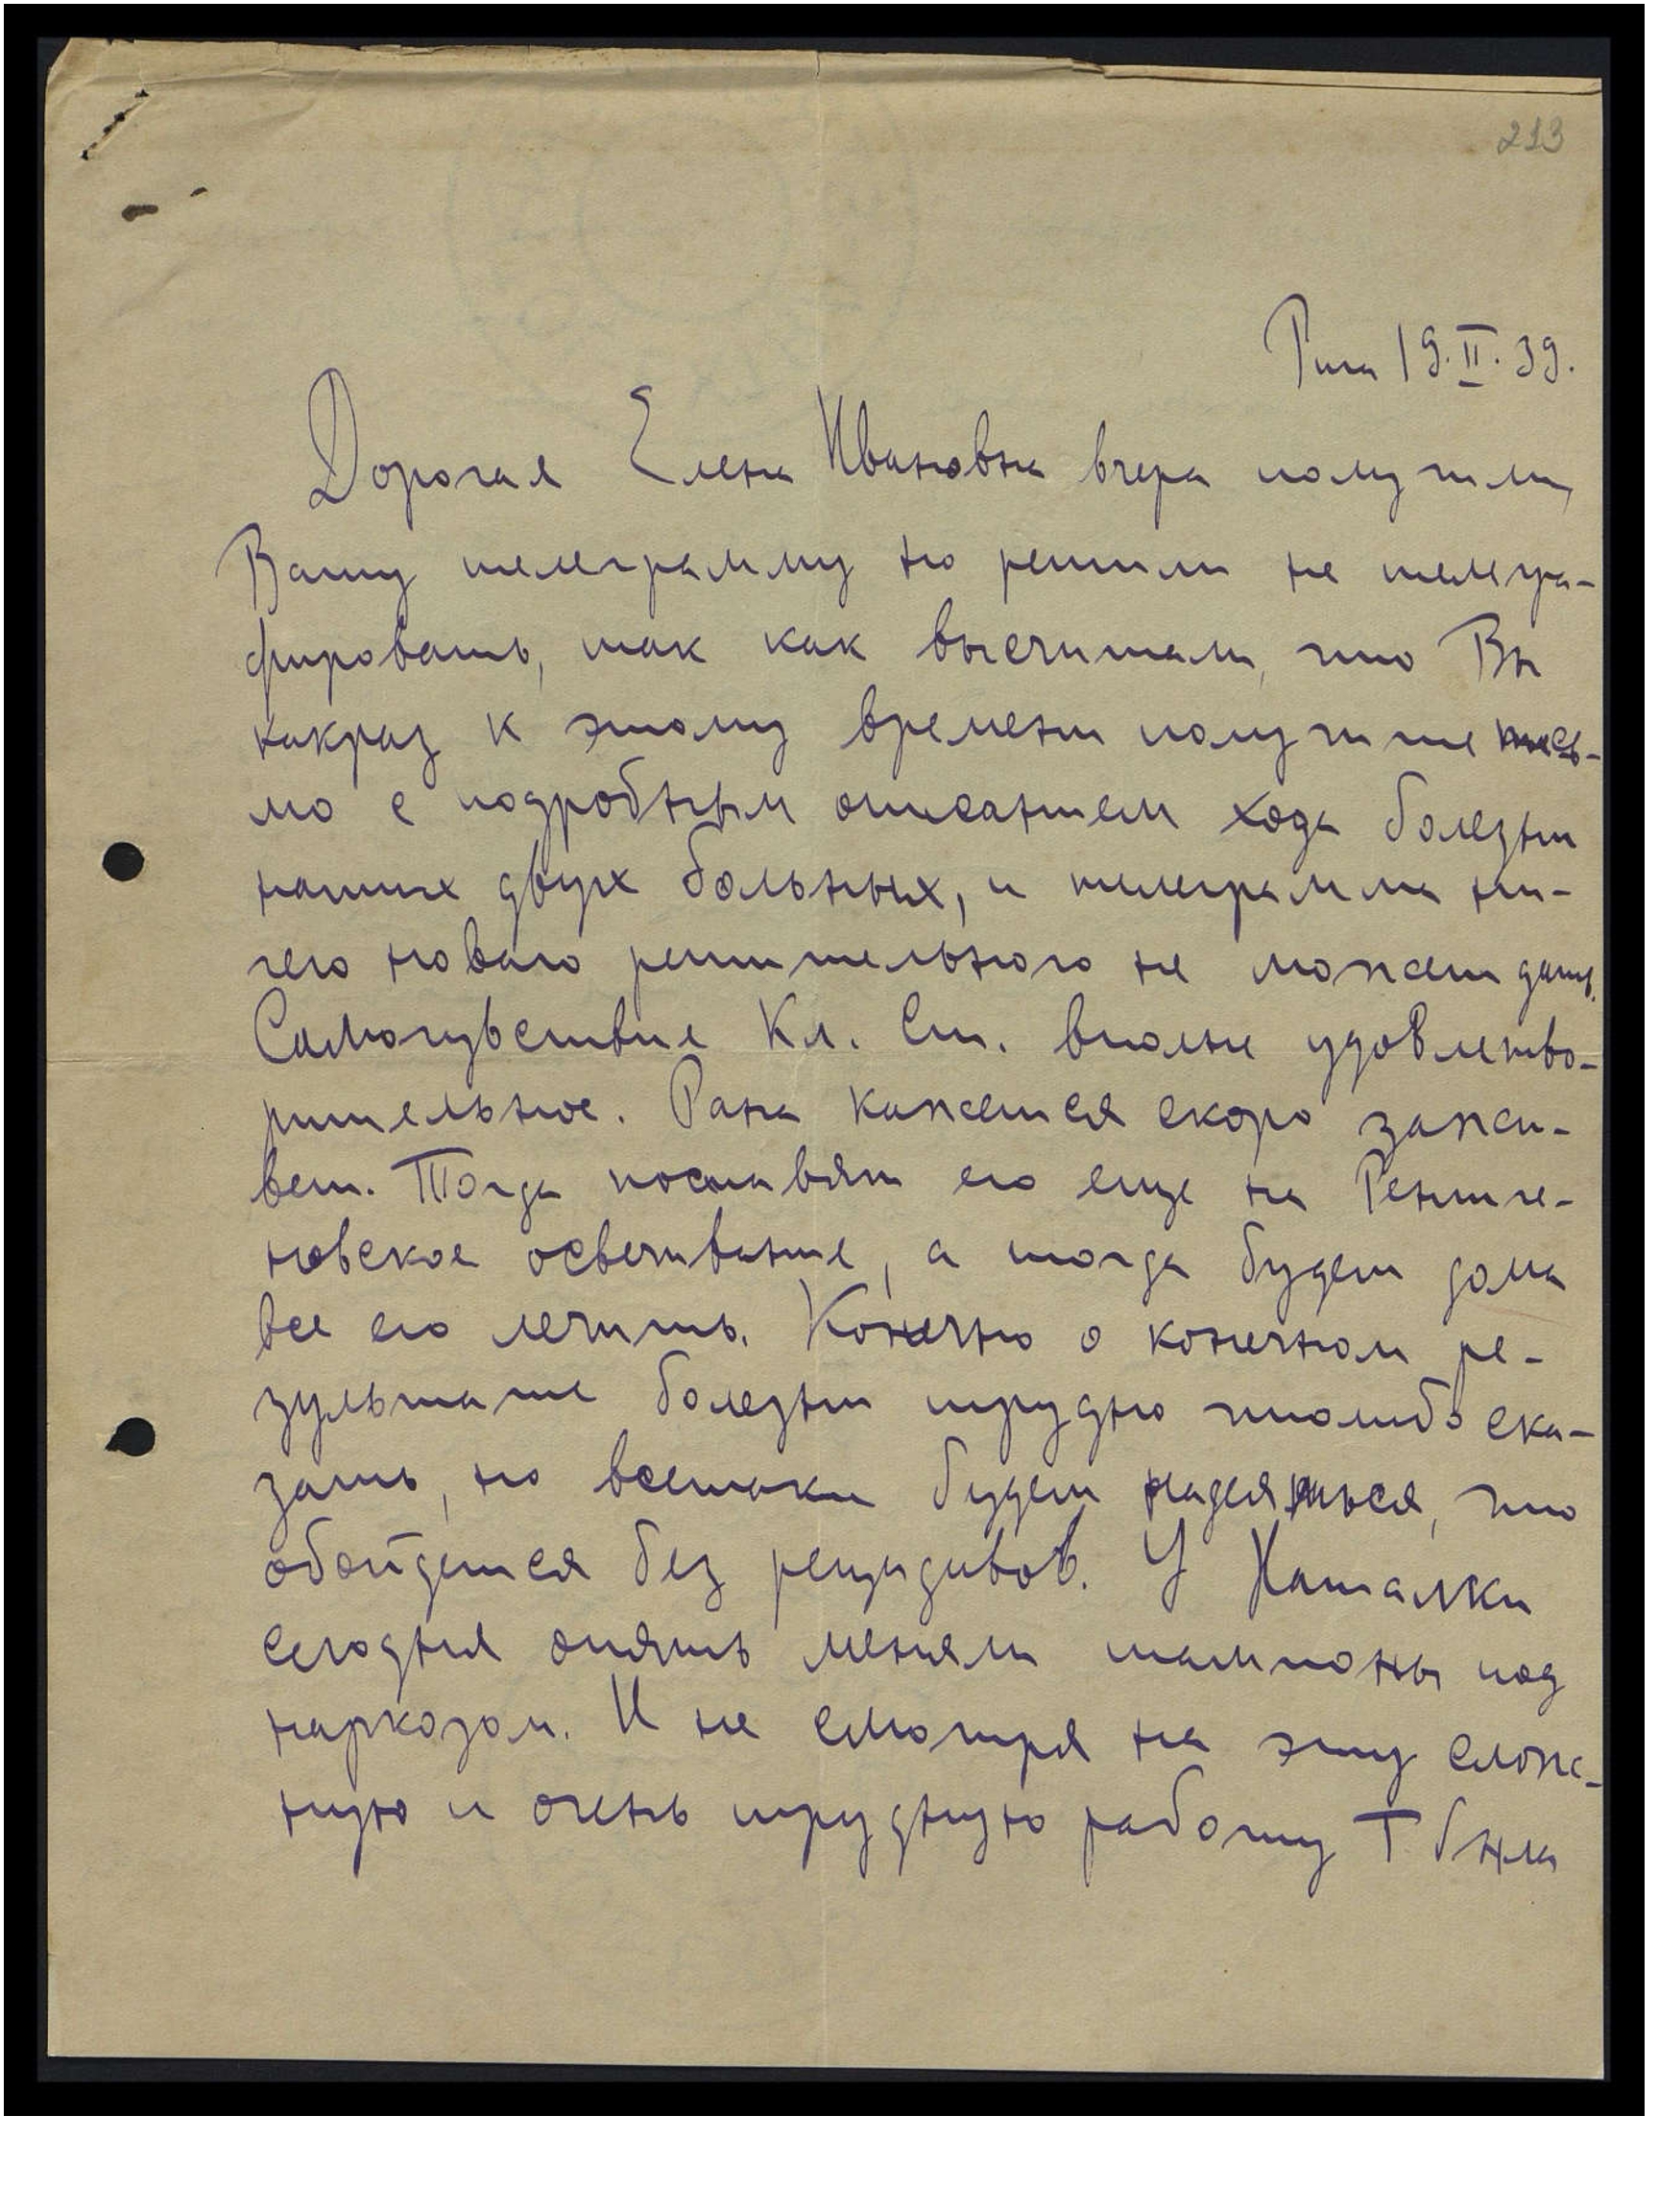 213
Рига 19.II.39.
Дорогая Елена Ивановна вчера получили,
Вашу телеграмму но решили не телегра-
фировать, так как высчитали, что Вы
какраз к этому времени получите пись-
мо с подробным описанием хода болезни
наших двух больных, и телеграмма ни-
чего новаго решительного не может дать.
Самочувствие Кл. Ст. вполне удовлетво-
рительное. Рана кажется скоро зажи-
вет. Тогда поставят его еще на Рентге-
новское освечивание, а тогда будет дома
все его лечить. Конечно о конечном ре-
зультате болезни трудно чтолибо ска-
зать, но всетаки будем надеяться, что
обойдется без рецидивов. У Наталки
сегодня опять меняли тампоны под
наркозом. И не смотря на эту слож-
ную и очень трудную работу Т была